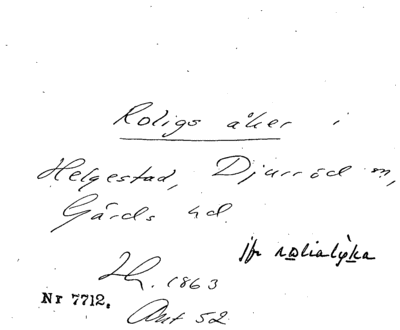 Roligs åker i
Helgestad, Djurröd m,
Gärds hd.
jfr rolialýka
Ih. 1863
Nr 7712.
Ant 52